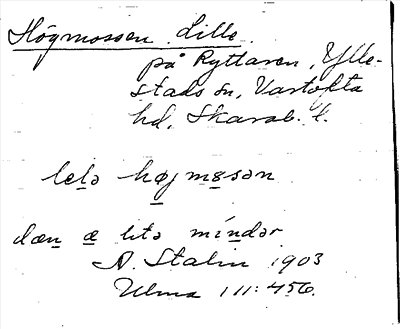 Högmossen Lille
på Ryttaren, Ylle-
stads sn, Vartofta
hd, Skarab. l.
lelə højmɵsən
dæn æ litə míndər
A. Stalin 1903
Ulma 111:456.